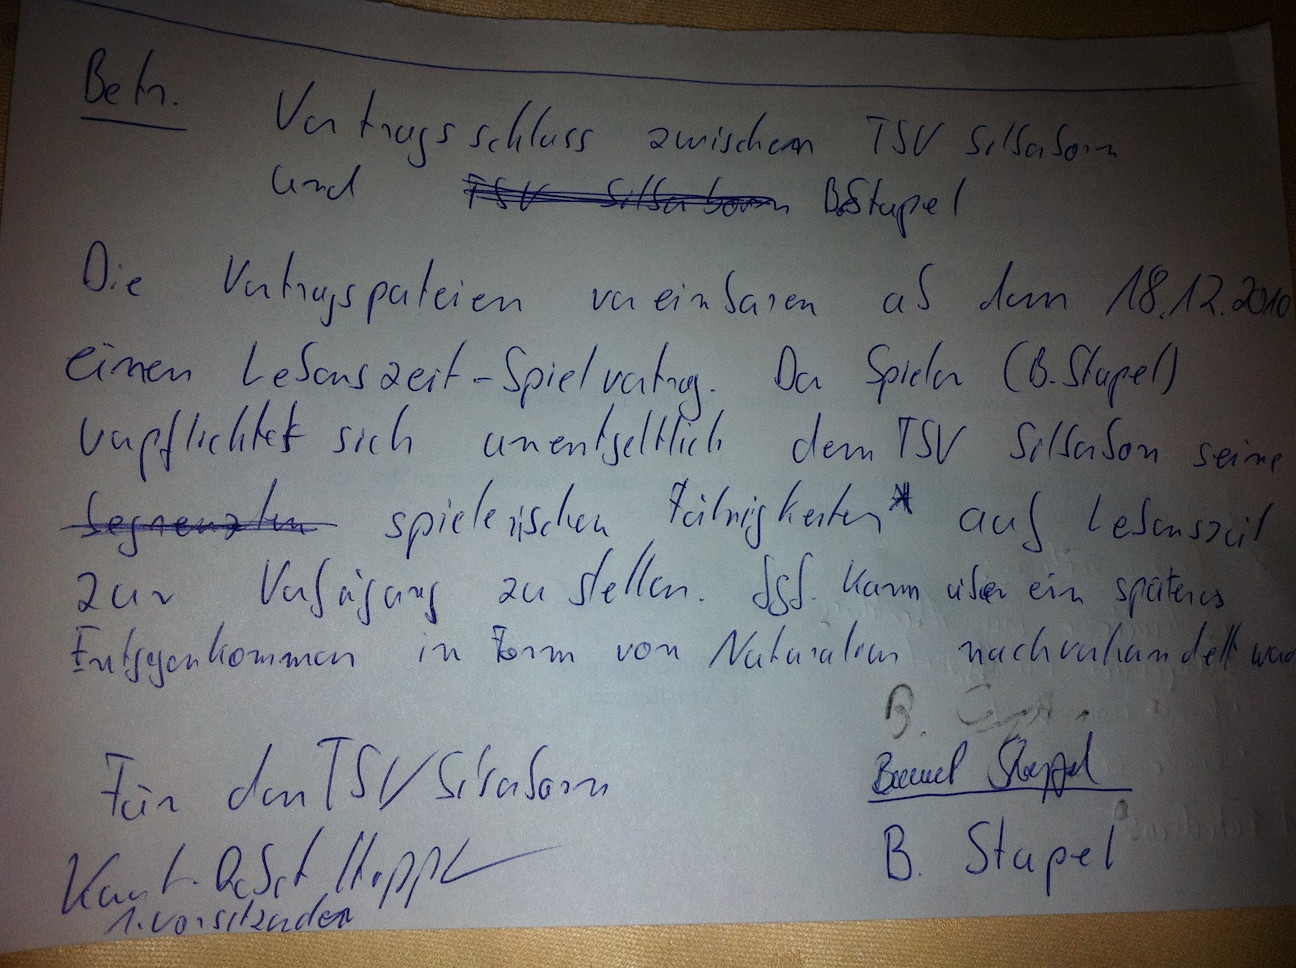 Betr. Vertragsschluss zwischen TSV Silberborn
und TSV Silberborn B. Stapel
Die Vertragspateien vereinbaren ab dem 18.12.2010
einen Lebenszeit-Spielvertrag. Der Spieler (B. Stapel)
verpflichtet sich unentgeltlich dem TSV Silberborn seine
spielerischen Fähigkeiten* auf Lebenszeit
zur Verfügung zu stellen. Ggf. kann über ein späteres
Entgegenkommen in Form von Naturalien nachverhandelt werd
B.
Stappel
Für den TSV Silberborn
B. Stapel
1. Vorsitzender